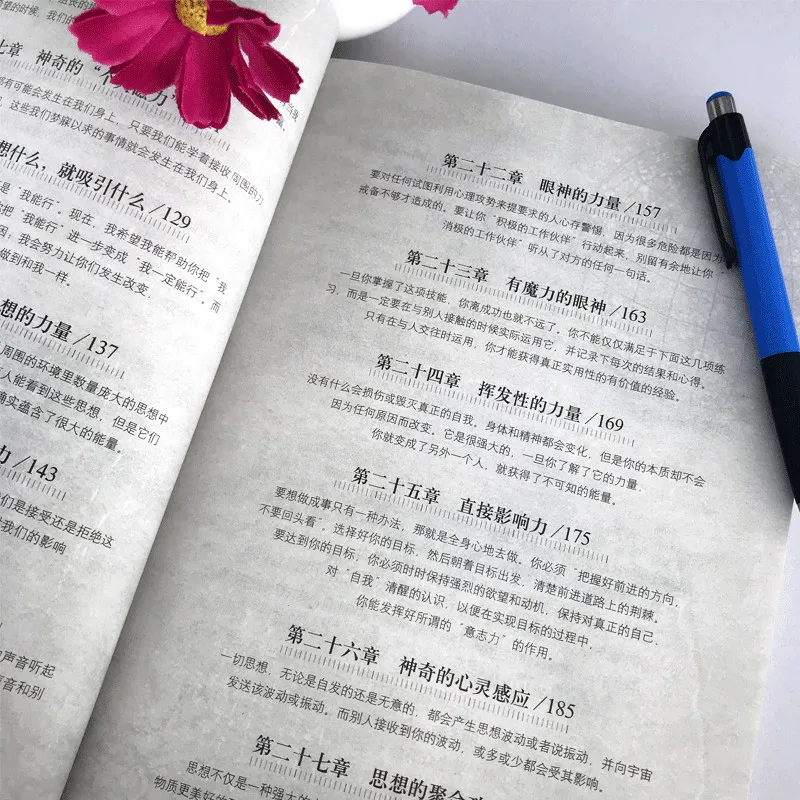 望的时候，我们的
七章 神奇的“
都有可能会发生在我们身上，只要我们能学着接收周围的力
，这些我们梦寐以来的事情就会发生在我们身上。
想什么，就吸引什么/129
是“我能行”。现在，我希望我能帮助你把“我
你把“我能行”进一步变成“我一定能行”。而
因，我会努力让你们发生改变，
做到和我一样。
想的力量/137
周围的环境里数量庞大的思想中
人能看到这些思想，但是它们
确实蕴含了很大的能量。
力/143
们是接受还是拒绝这
我们的影响
声音听起
声音和别
第二十二章 眼神的力量/157
要对任何试图利用心理攻势来提要求的人心存警惕，因为很多危险都是因为
戒备不够才造成的。要让你“积极的工作伙伴”行动起来，别留有余地让你“
消极的工作伙伴”听从了对方的任何一句话。
第二十三章 有魔力的眼神/163
一旦你掌握了这项技能，你离成功也就不远了。你不能仅仅满足于下面这几项练
习，而是一定要在与别人接触的时候实际运用它，并记录下每次的结果和心得。
只有在与人交往时运用，你才能获得真正实用性的有价值的经验。
第二十四章 挥发性的力量/169
没有什么会损伤或毁灭真正的自我。身体和精神都会变化，但是你的本质却不会
因为任何原因而改变。它是很强大的，一旦你了解了它的力量，
你就变成了另外一个人，就获得了不可知的能量。
第二十五章 直接影响力/175
要想做成事只有一种办法，那就是全身心地去做。你必须“把握好前进的方向，
不要回头看”。选择好你的目标，然后朝着目标出发，清楚前进道路上的荆棘。
要达到你的目标，你必须时时保持强烈的欲望和动机，保持对真正的自己，
对“自我”清醒的认识，以便在实现目标的过程中，
你能发挥好所谓的“意志力”的作用。
第二十六章 神奇的心灵感应/185
一切思想，无论是自发的还是无意的，都会产生思想波动或者说振动，并向宇宙
发送该波动或振动。而别人接收到你的波动，或多或少都会受其影响。
第二十七章 思想的聚合
思想不仅是一种强大的
物质更美好的